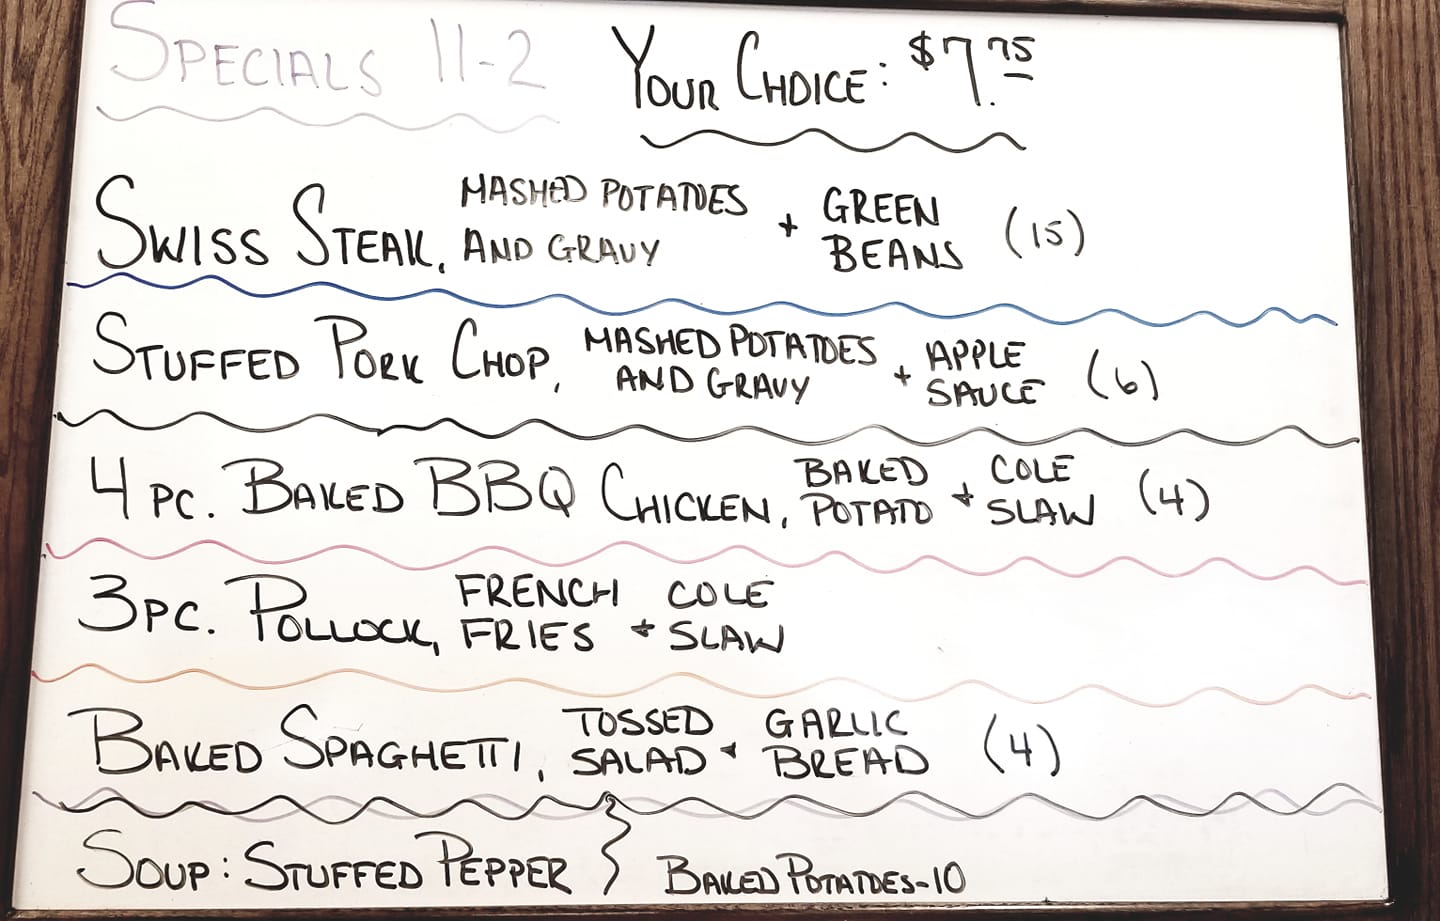 SPECIALS 11-2 YOUR CHOICE: $7.75
SWISS STEAK, MASHED POTATOES AND GRAVY + GREEN BEANS (15)
STUFFED PORK CHOP, MASHED POTATOES AND GRAVY + APPLE SAUCE (6)
4 PC. BAKED BBQ CHICKEN, BAKED POTATO + COLE SLAW (4)
3 PC. POLLOCK, FRENCH FRIES + COLE SLAW
BAKED SPAGHETTI, TOSSED SALAD + GARLIC BREAD (4)
SOUP: STUFFED PEPPER } BAKED POTATOES-10